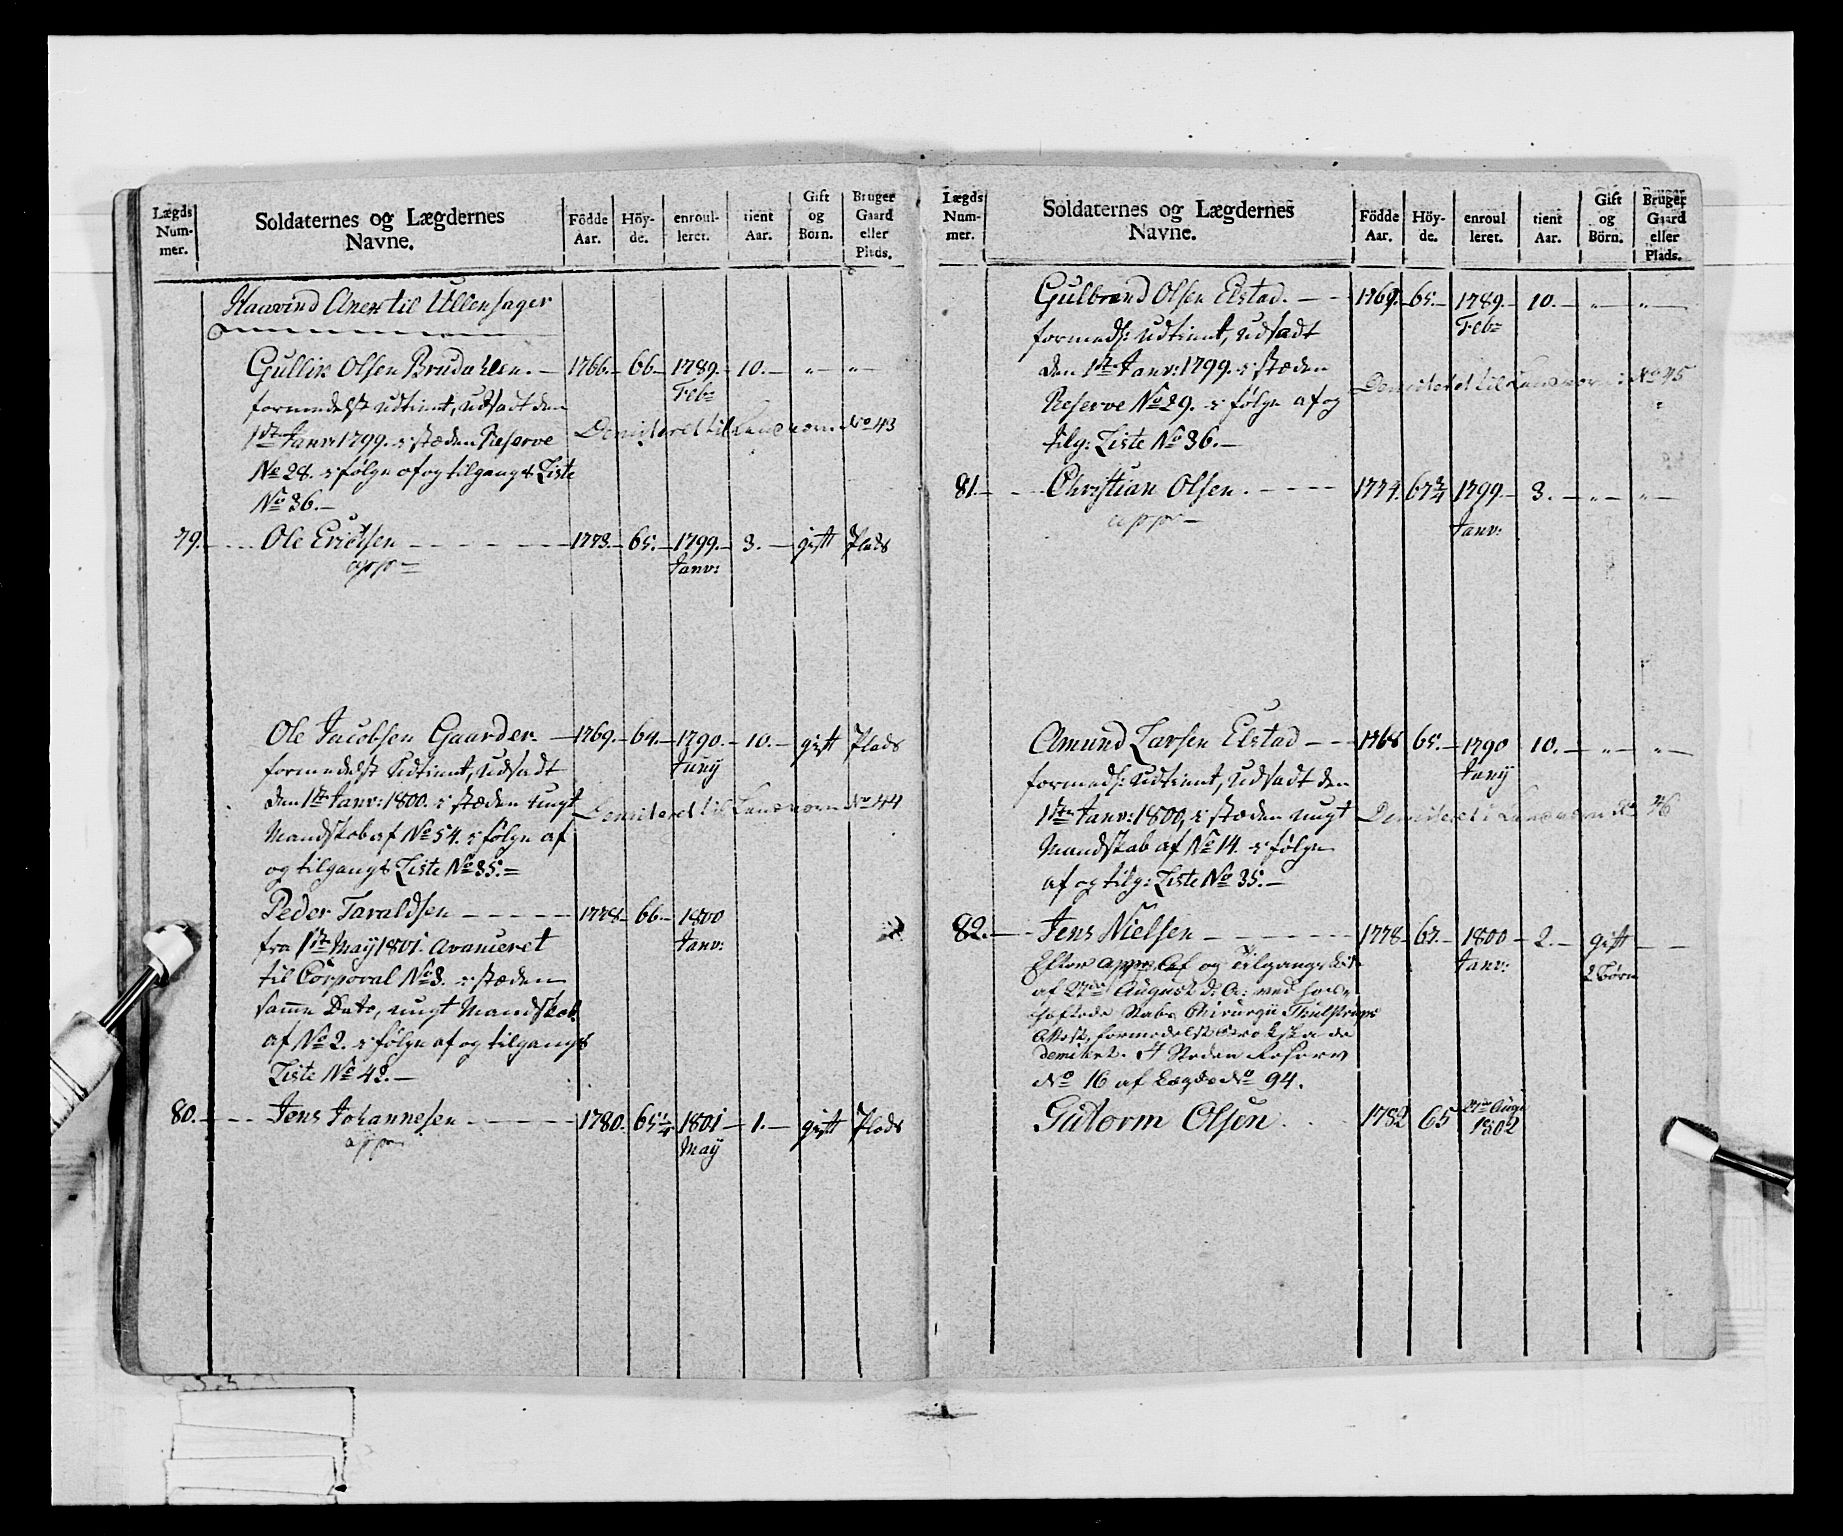 Lægds Num- mer.
Soldaternes og Lægdernes Navne.
Födde Aar.
Höy- de.
enroul- leret.
tient Aar.
Gift og Born.
Bruger Gaard eller Plads.
Haavind Anex til Ullensager
Gullik Olsen Brudahlen. — 1766. — 66 — 1789. — 10. — „ — „ —
formedelst udtient, udsadt den Febr
1ste Janv: 1799. i stæden Reserve Demiteret til Landvern No 43
No 28. i følge af og tilgangs Liste
No 36. —
79. — Ole Erichsen — 1773. — 65. — 1799. — 3. — gift Plads
app — Janv:
Ole Jacobsen Gaarder — 1769. — 64. — 1790. — 10. — gift Plads
formedelst udtient, udsadt Juny
den 1ste Janv: 1800. i stæden ungt Demiteret til Landvern No 44
Mandskab af No 54. i følge af
og tilgangs Liste No 35. =
Peder Taraldsen — 1778. — 66. — 1800
fra 1ste May 1801. avanceret Janv:
til Corporal No 3. i stæden
samme Dato, ungt Mandskab
af No 2. i følge af og tilgangs
Liste No 42. —
80. — Jens Johannesen — 1780. 65 1/4 1801 — 1. — gift Plads
app May
Lægds Num- mer.
Soldaternes og Lægdernes Navne.
Födde Aar.
Höy- de.
enroul leret.
tient Aar.
Gift og Börn.
Bruger Gaard eller Plads.
Gulbrand Olsen Elstad. — 1769. — 65. — 1789. — 10. — „ — „ —
formeds: udtient, udsadt Febr
den 1ste Janv: 1799. i stæden
Reserve No 29. i følge af og Demiteret til Landvern No 45
tilg: Liste No 36. —
81. — Christian Olsen. — 1774. 67 3/4 1799 — 3. — „ — „ —
app — Janv:
Amund Larsen Elstad — 1768 65. — 1790 10. — „ — „ —
formeds: udtient, udsadt den Juny
1ste Janv: 1800, i stæden ungt Demiteret i Landvern No 46
Mandskab af No 14. i følge
af og tilg: Liste No 35. —
82. — Jens Nielsen — 1778 — 67. — 1800 — 2. — gift — —
Efter app: Af og Tilgangs Liste Janv: 2 Börn
af 27de August d: A: ved
Stabs Chirurgi Thulstrups
Attest, formedelst
demitert. I Steden Reserv
No 16 af Lægds No 94.
Guttorm Olsen 1782 65 27de Aug: 1802